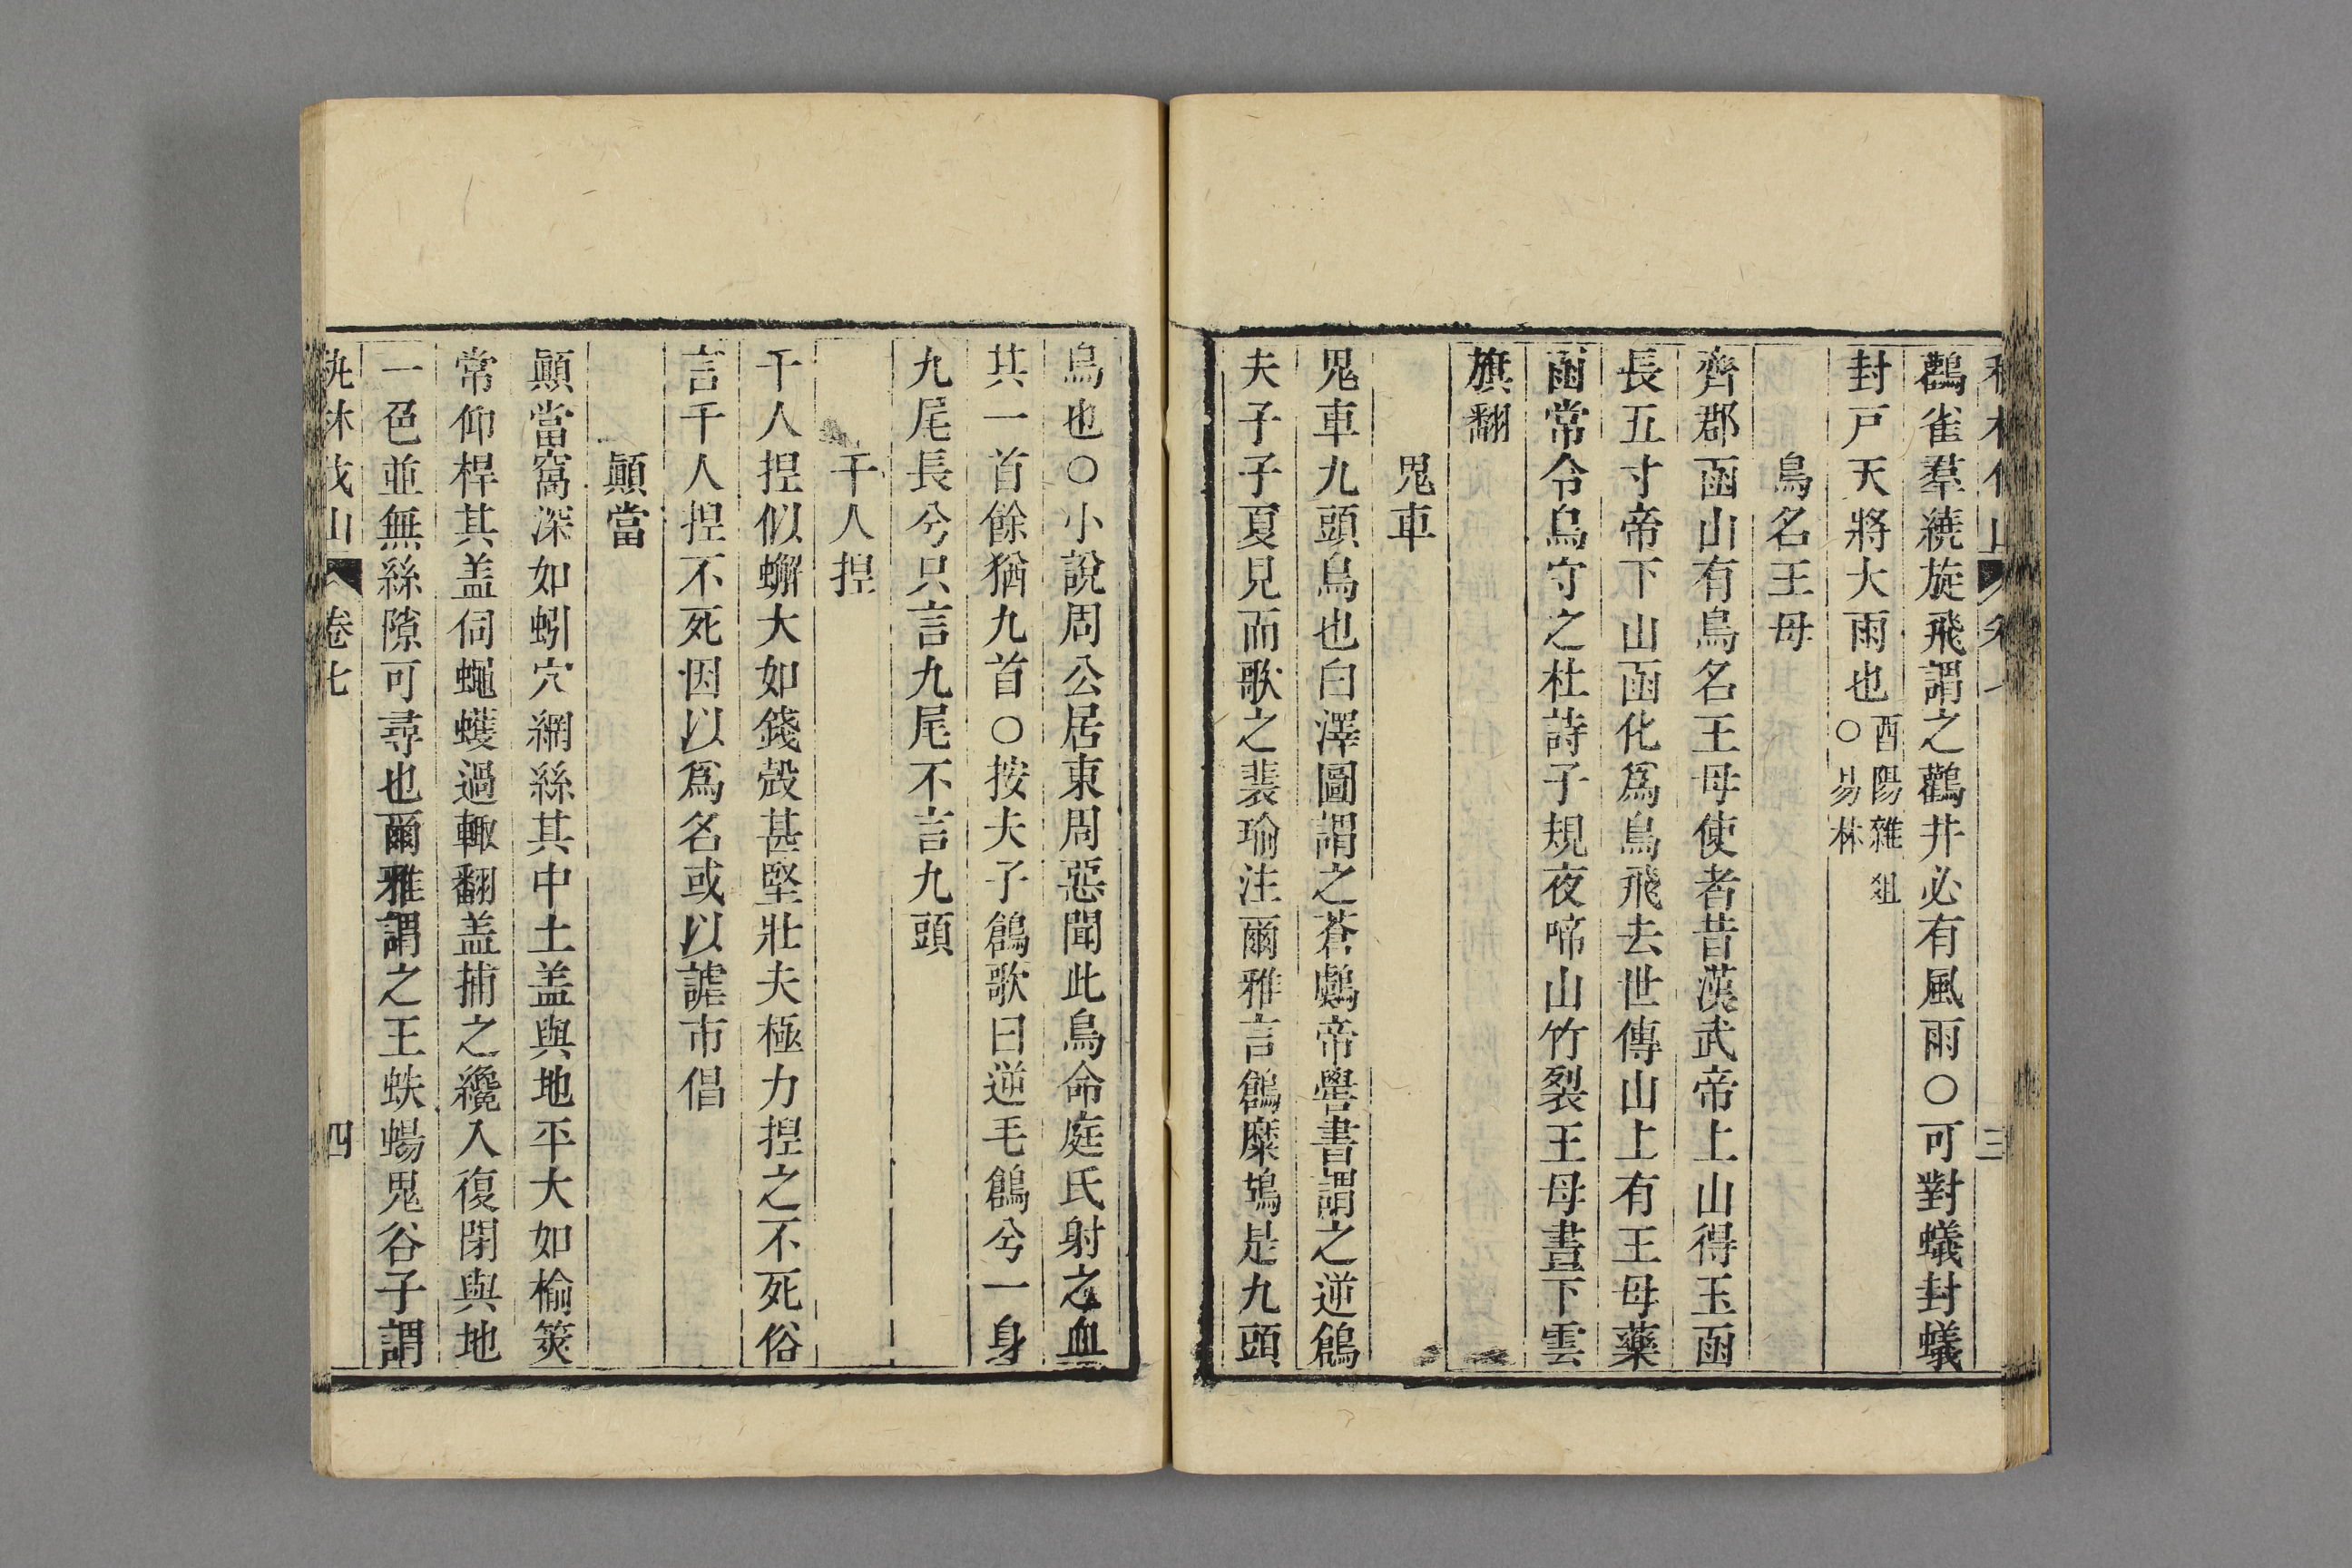 鸛雀羣繞旋飛謂之鸛井必有風雨○可對蟻封蟻
封戸天將大雨也酉陽雜俎
○易林
鳥名王母
齊郡函山有鳥名王母使者昔漢武帝上山得玉函
長五寸帝下山函化爲鳥飛去世傳山上有王母藥
函常令鳥守之杜詩子規夜啼山竹裂王母晝下雲
旗翻
鬼車
鬼車九頭鳥也白澤圖謂之蒼鸆帝嚳書謂之逆鶬
夫子子夏見而歌之裴瑜注爾雅言鶬麋鴰是九頭
鳥也○小說周公居東周惡聞此鳥命庭氏射之血
其一首餘猶九首○按夫子鶬歌曰逆毛鶬兮一身
九尾長兮只言九尾不言九頭
千人揑
千人揑似蠏大如錢殼甚堅壯夫極力揑之不死俗
言千人揑不死因以爲名或以謔市倡
顚當
顚當窩深如蚓穴網絲其中土盖與地平大如榆筴
常仰桿其盖伺蠅蠖過輙翻盖捕之纔入復閉與地
一色並無絲隙可尋也爾雅謂之王蛈蝪鬼谷子謂
秇林伐山 卷七 四